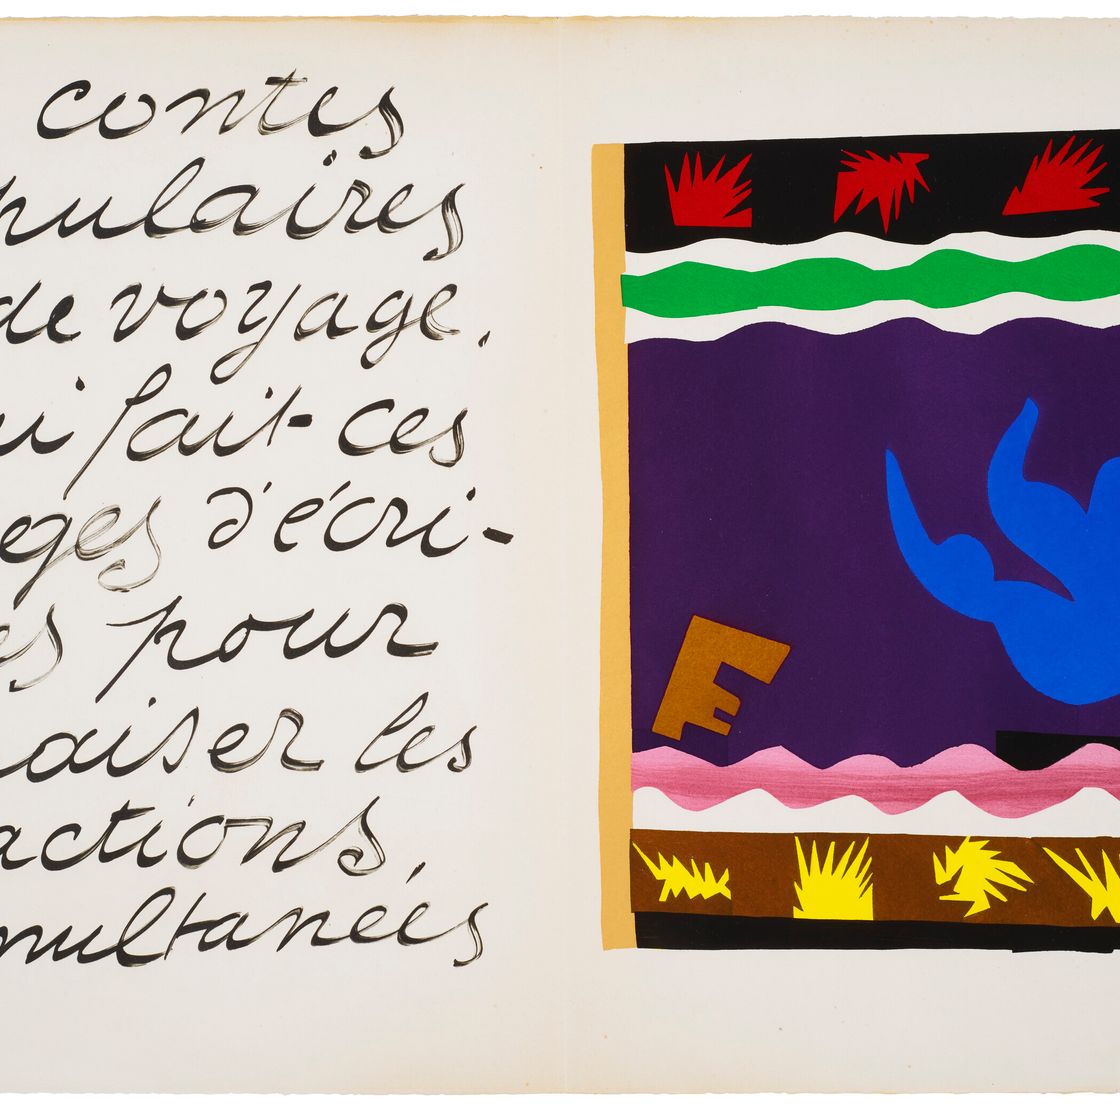 contes
pulaires
de voyage.
ai fait ces
ges d'écri-
es pour
aiser les
actions,
multanées